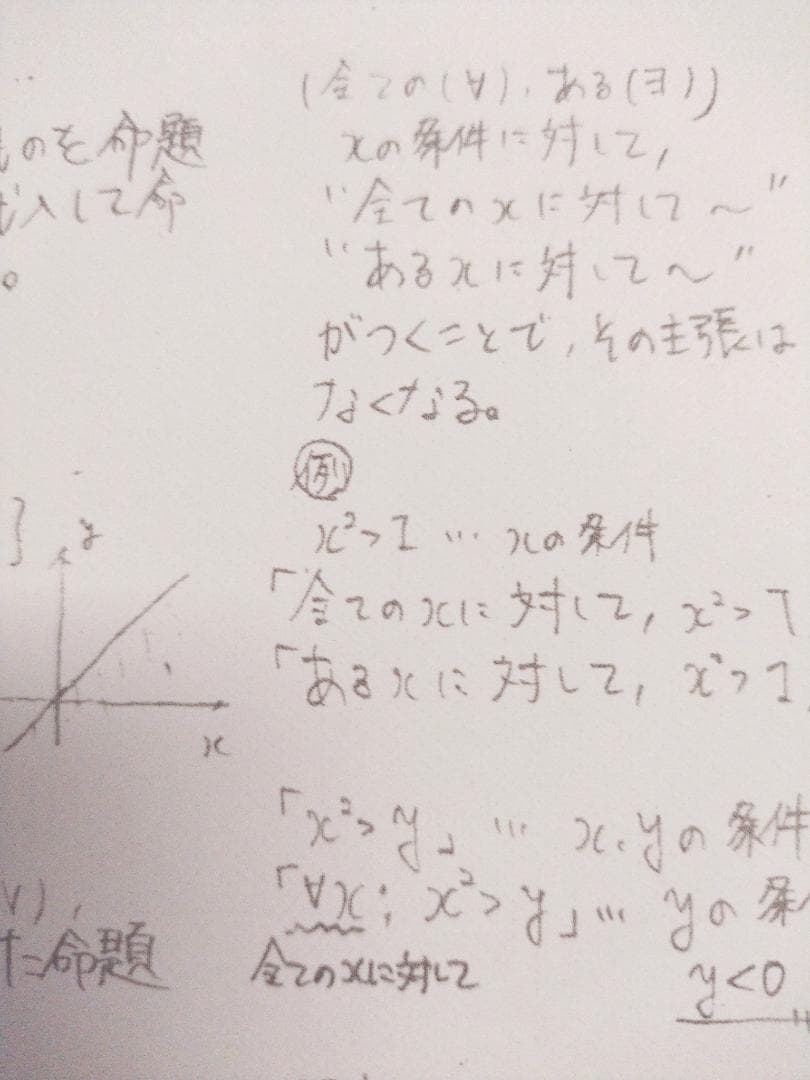 (全ての(∀), ある(ヨ))
ものを命題
xの条件に対して,
入して命
"全てのxに対して〜"
。
"あるxに対して〜"
がつくことで, その主張は
なくなる。
例
x²>1 … xの条件
y
「全てのxに対して, x²>1
「あるxに対して, x²>1
x
「x²>y」 … x, yの条件
「∀x; x²>y」… yの条
∀),
た命題
全てのxに対して
y<0